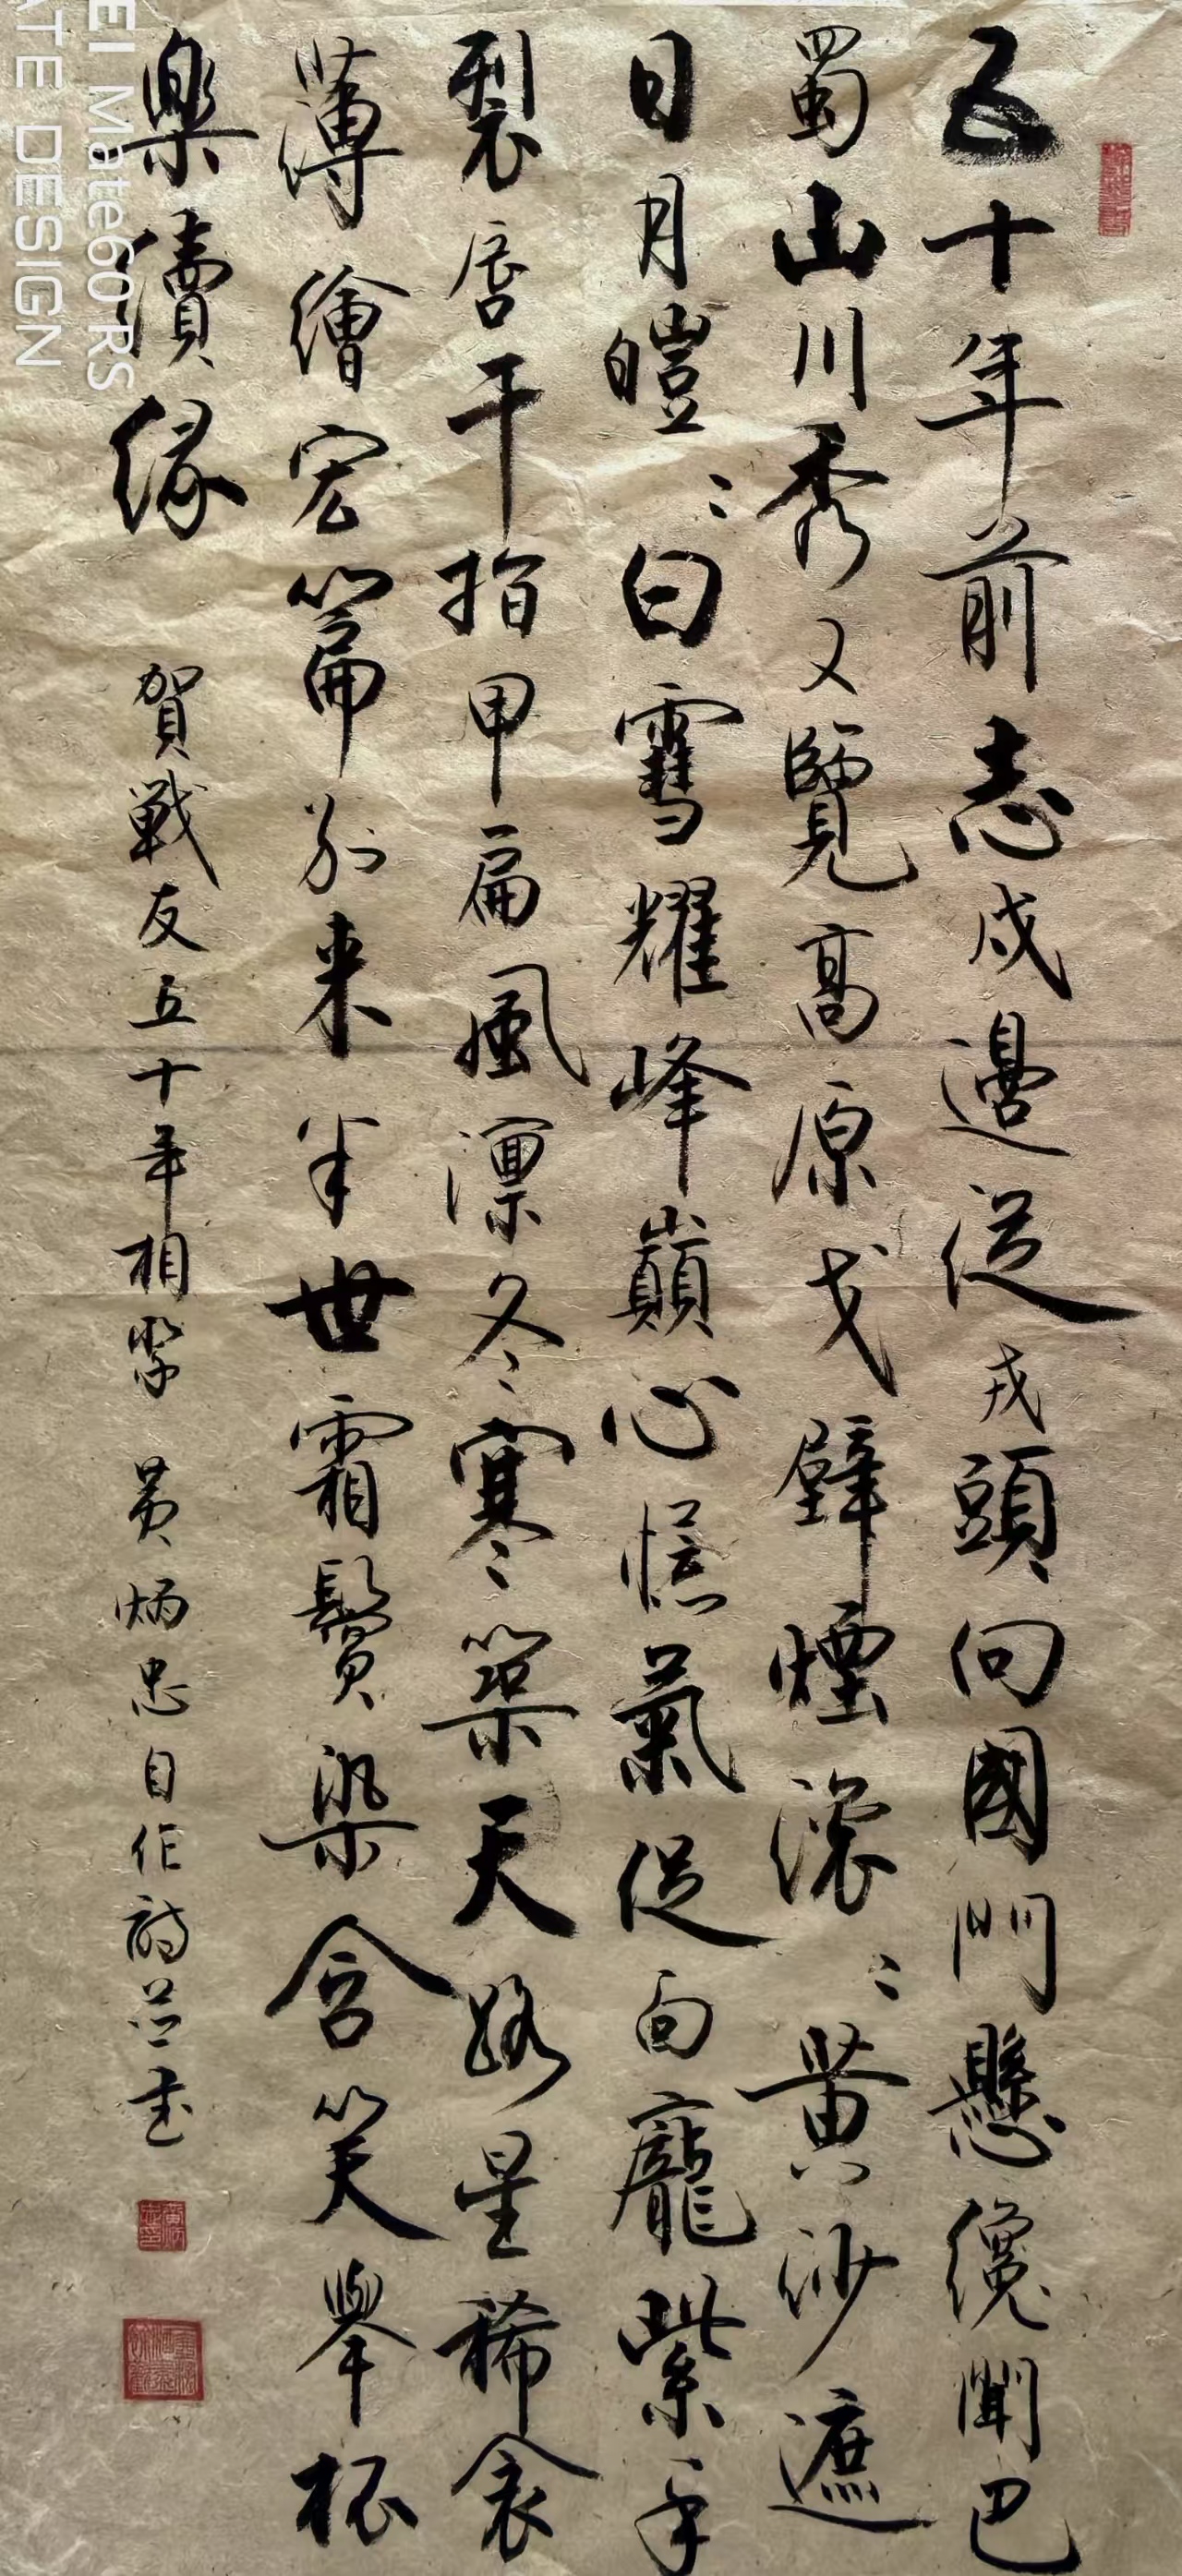 五十年前志戍邊從戎頭向國門懸纔聞巴
蜀山川秀又覽高原戈壁煙滾〻黃沙遮
日月皚〻白雪耀峰巔心慌氣促面龐紫手
裂唇干指甲扁風凛冬寒築天路星稀衾
薄繪宏篇別來半世霜鬢染含笑舉杯
樂續緣
賀戰友五十年相聚 黄炳忠自作詩并書
EI Mate60 RS
ATE DESIGN